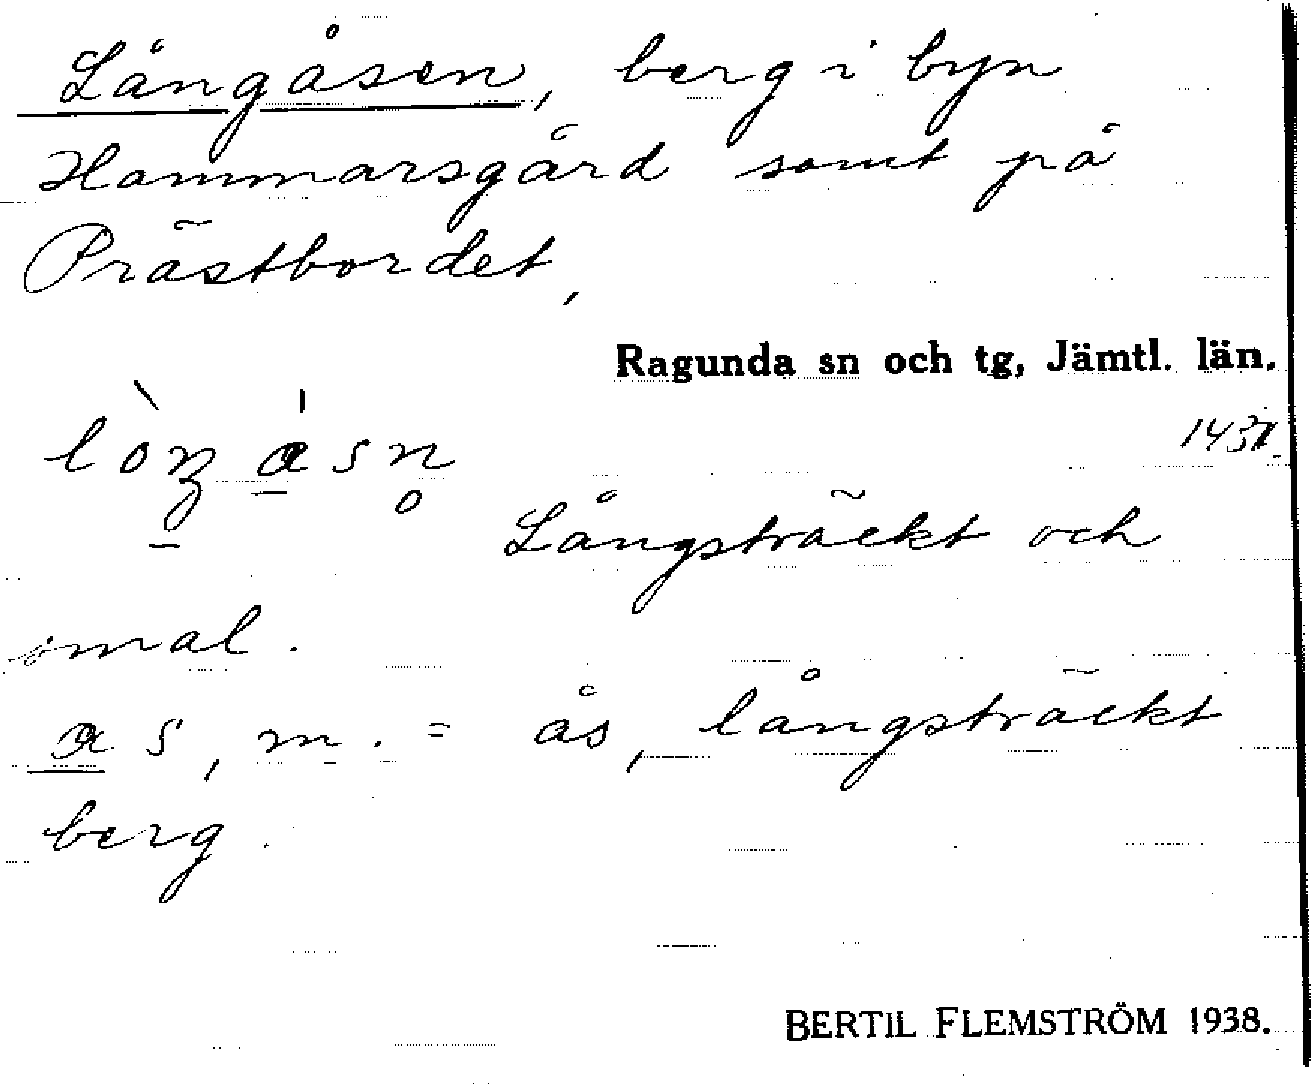 Långåsen, berg i byn
Hammarsgård samt på
Prästbordet,
Ragunda sn och tg, Jämtl. län.
Långsträckt och
smal.
as, m. = ås, långsträckt
berg.
BERTIL FLEMSTRÖM 1938.